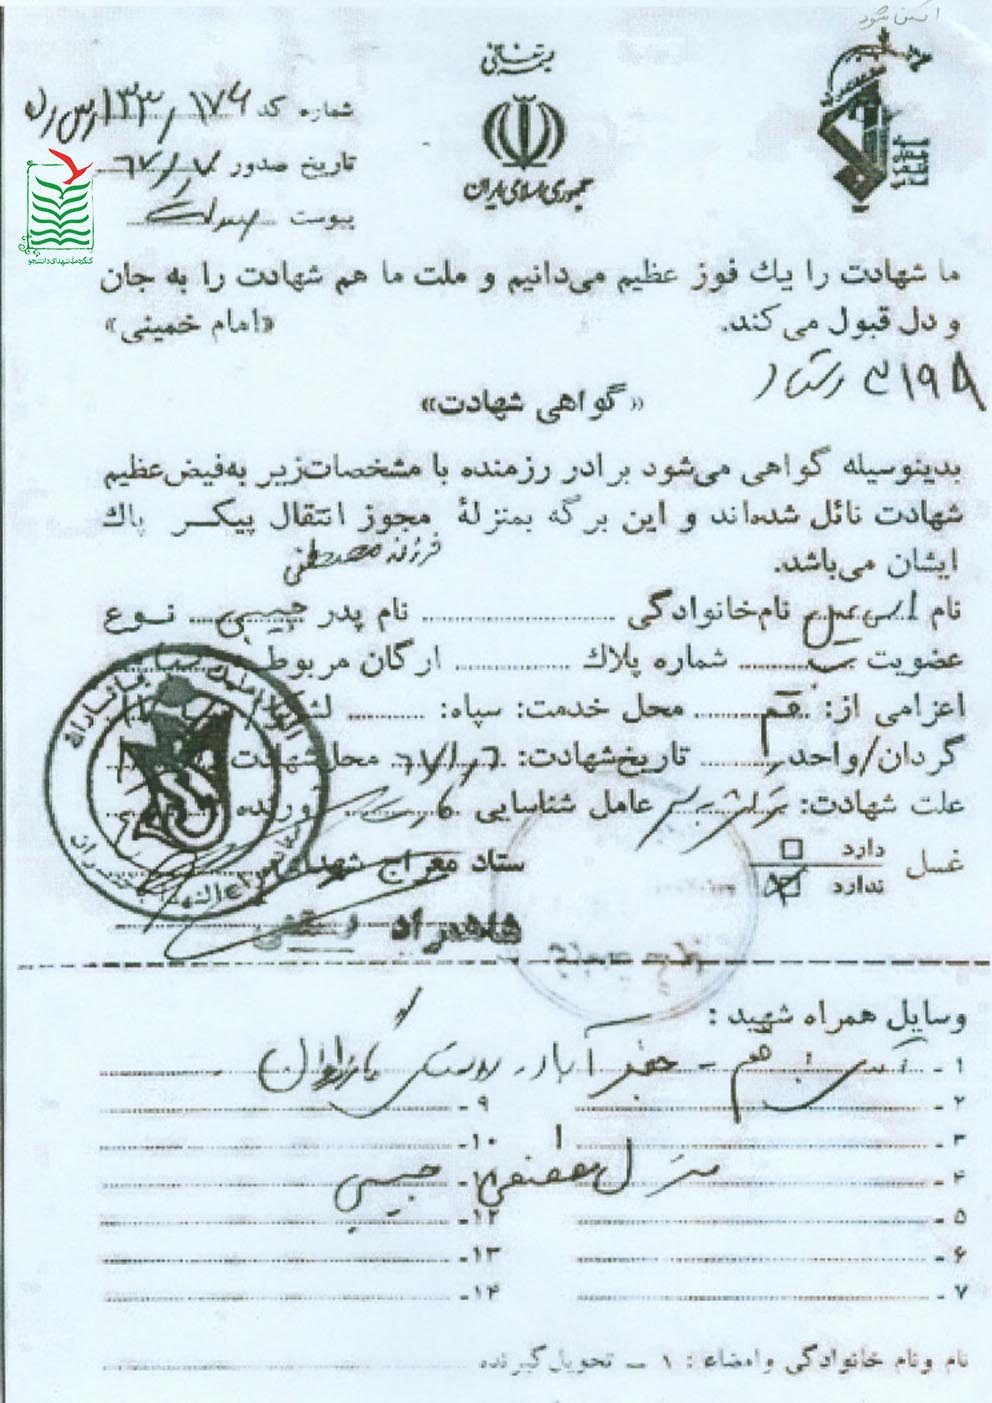 اسکن شود
بسمه تعالی
جمهوری اسلامی ایران
شماره کد ۱۳۳/۱۷۶
تاریخ صدور ۶۷/۱/۷
پیوست
کنگره ملی شهدای دانشجو
ما شهادت را یك فوز عظیم می‌دانیم و ملت ما هم شهادت را به جان
و دل قبول می‌کند. «امام خمینی»
۳۱۹۸
«گواهی شهادت»
بدینوسیله گواهی می‌شود برادر رزمنده با مشخصات‌زیر به‌فیض‌عظیم
شهادت نائل شده‌اند و این برگه بمنزلهٔ مجوز انتقال پیکـر پاك
ایشان می‌باشد. فرزند مصطفی
نام اسمعیل نام‌خانوادگی نام پدر حبیبی نـوع
عضویت ب شماره پلاك ارگان مربوط
اعزامی از: قم محل خدمت: سپاه: لشکر
گردان/واحد تاریخ‌شهادت: ۶۷/۱/۶ محل‌شهادت
علت شهادت: عامل شناسایی کارت آورنده
غسل دارد ندارد
ستاد معراج شهدای
وسایل همراه شهید:
۱ - آدرس: قم - جعفرآباد - روستای
۲ - ۹ -
۳ - ۱۰ -
۴ - منزل مصطفی حبیبی ۱۱ -
۵ - ۱۲ -
۶ - ۱۳ -
۷ - ۱۴ -
نام ونام خانوادگی وامضاء: ۱ - تحویل‌گیرنده